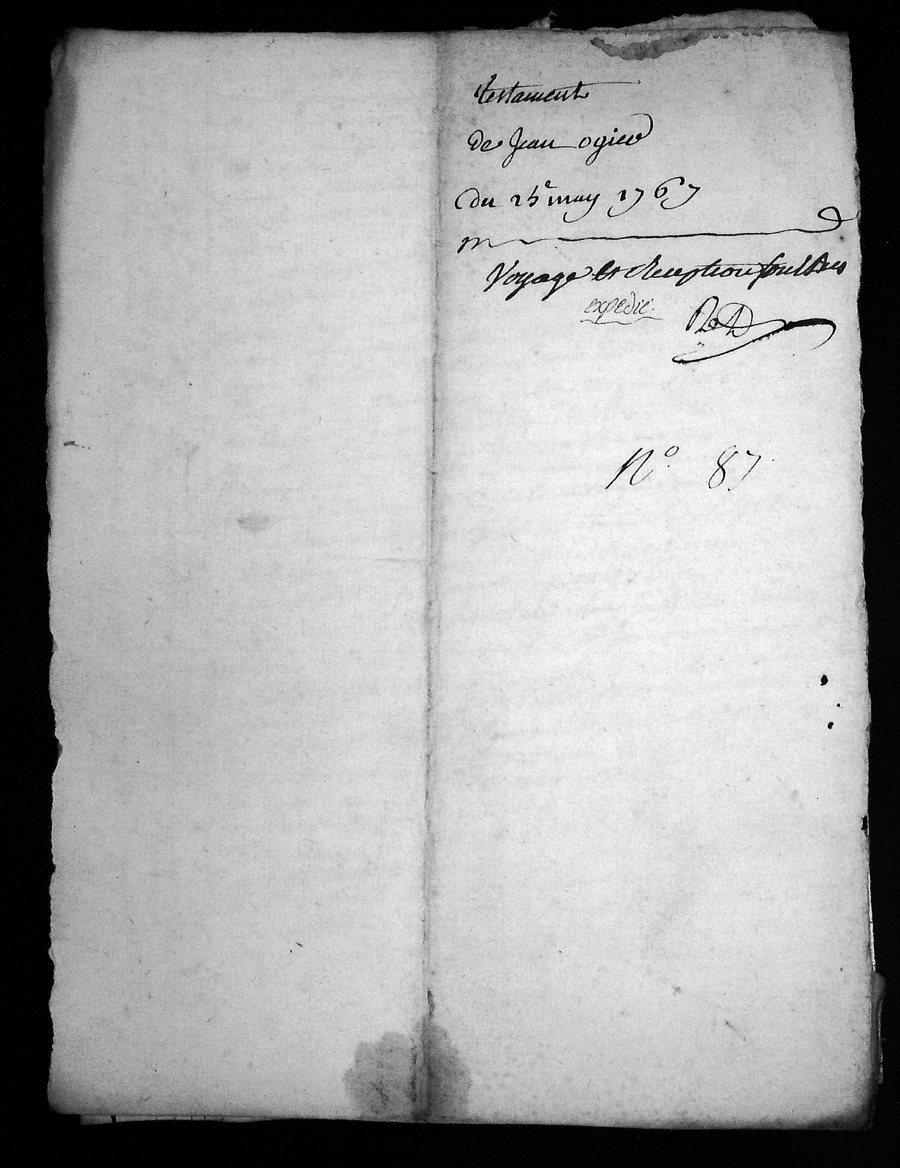 testament
de Jean ogier
du 25e may 1767
Voyage et Reception
expedié.
N° 87